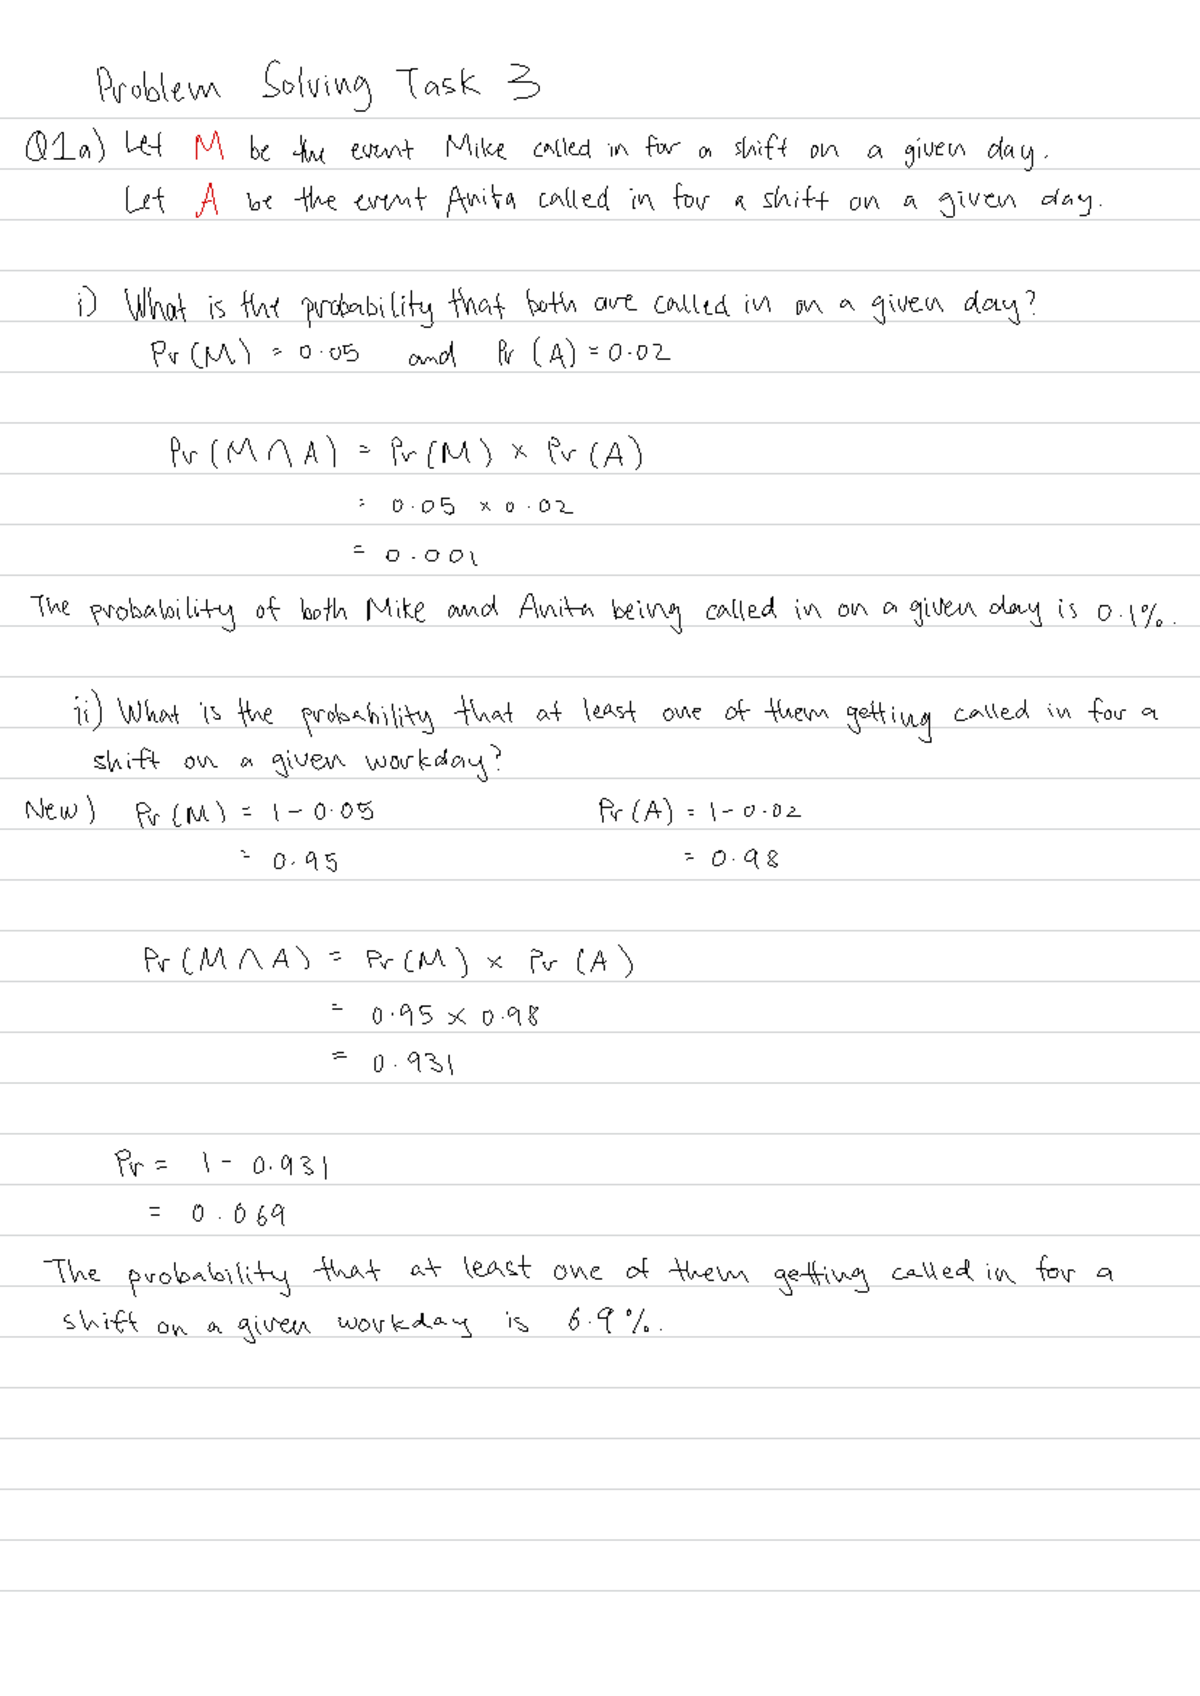 Problem Solving Task 3
Q1a) Let M be the event Mike called in for a shift on a given day.
Let A be the event Anita called in for a shift on a given day.
i) What is the probability that both are called in on a given day?
Pr (M) = 0.05 and Pr (A) = 0.02
Pr (M ∩ A) = Pr (M) × Pr (A)
= 0.05 × 0.02
= 0.001
The probability of both Mike and Anita being called in on a given day is 0.1%.
ii) What is the probability that at least one of them getting called in for a
shift on a given workday?
New) Pr (M) = 1 - 0.05 Pr (A) = 1 - 0.02
= 0.95 = 0.98
Pr (M ∩ A) = Pr (M) × Pr (A)
= 0.95 × 0.98
= 0.931
Pr = 1 - 0.931
= 0.069
The probability that at least one of them getting called in for a
shift on a given workday is 6.9%.